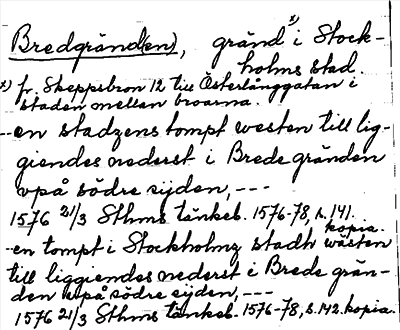 Bredgränd(en), gränd x) i Stock-
holms stad.
x) fr. Skeppsbron 12 till Österlånggatan i
staden mellan broarna.
--en stadzens tompt westen till lig-
giendes nederst i Brede gränden
vpå södre sijden, ---
1576 21/3 Sthms tänkeb. 1576-78, s. 141.
kopia.
--en tompt i Stockholmz stadh wästen
till liggiendes nederst i Brede grän-
den vpå södre sijden, ---
1576 21/3 Sthms tänkeb. 1576-78, s. 142. kopia.